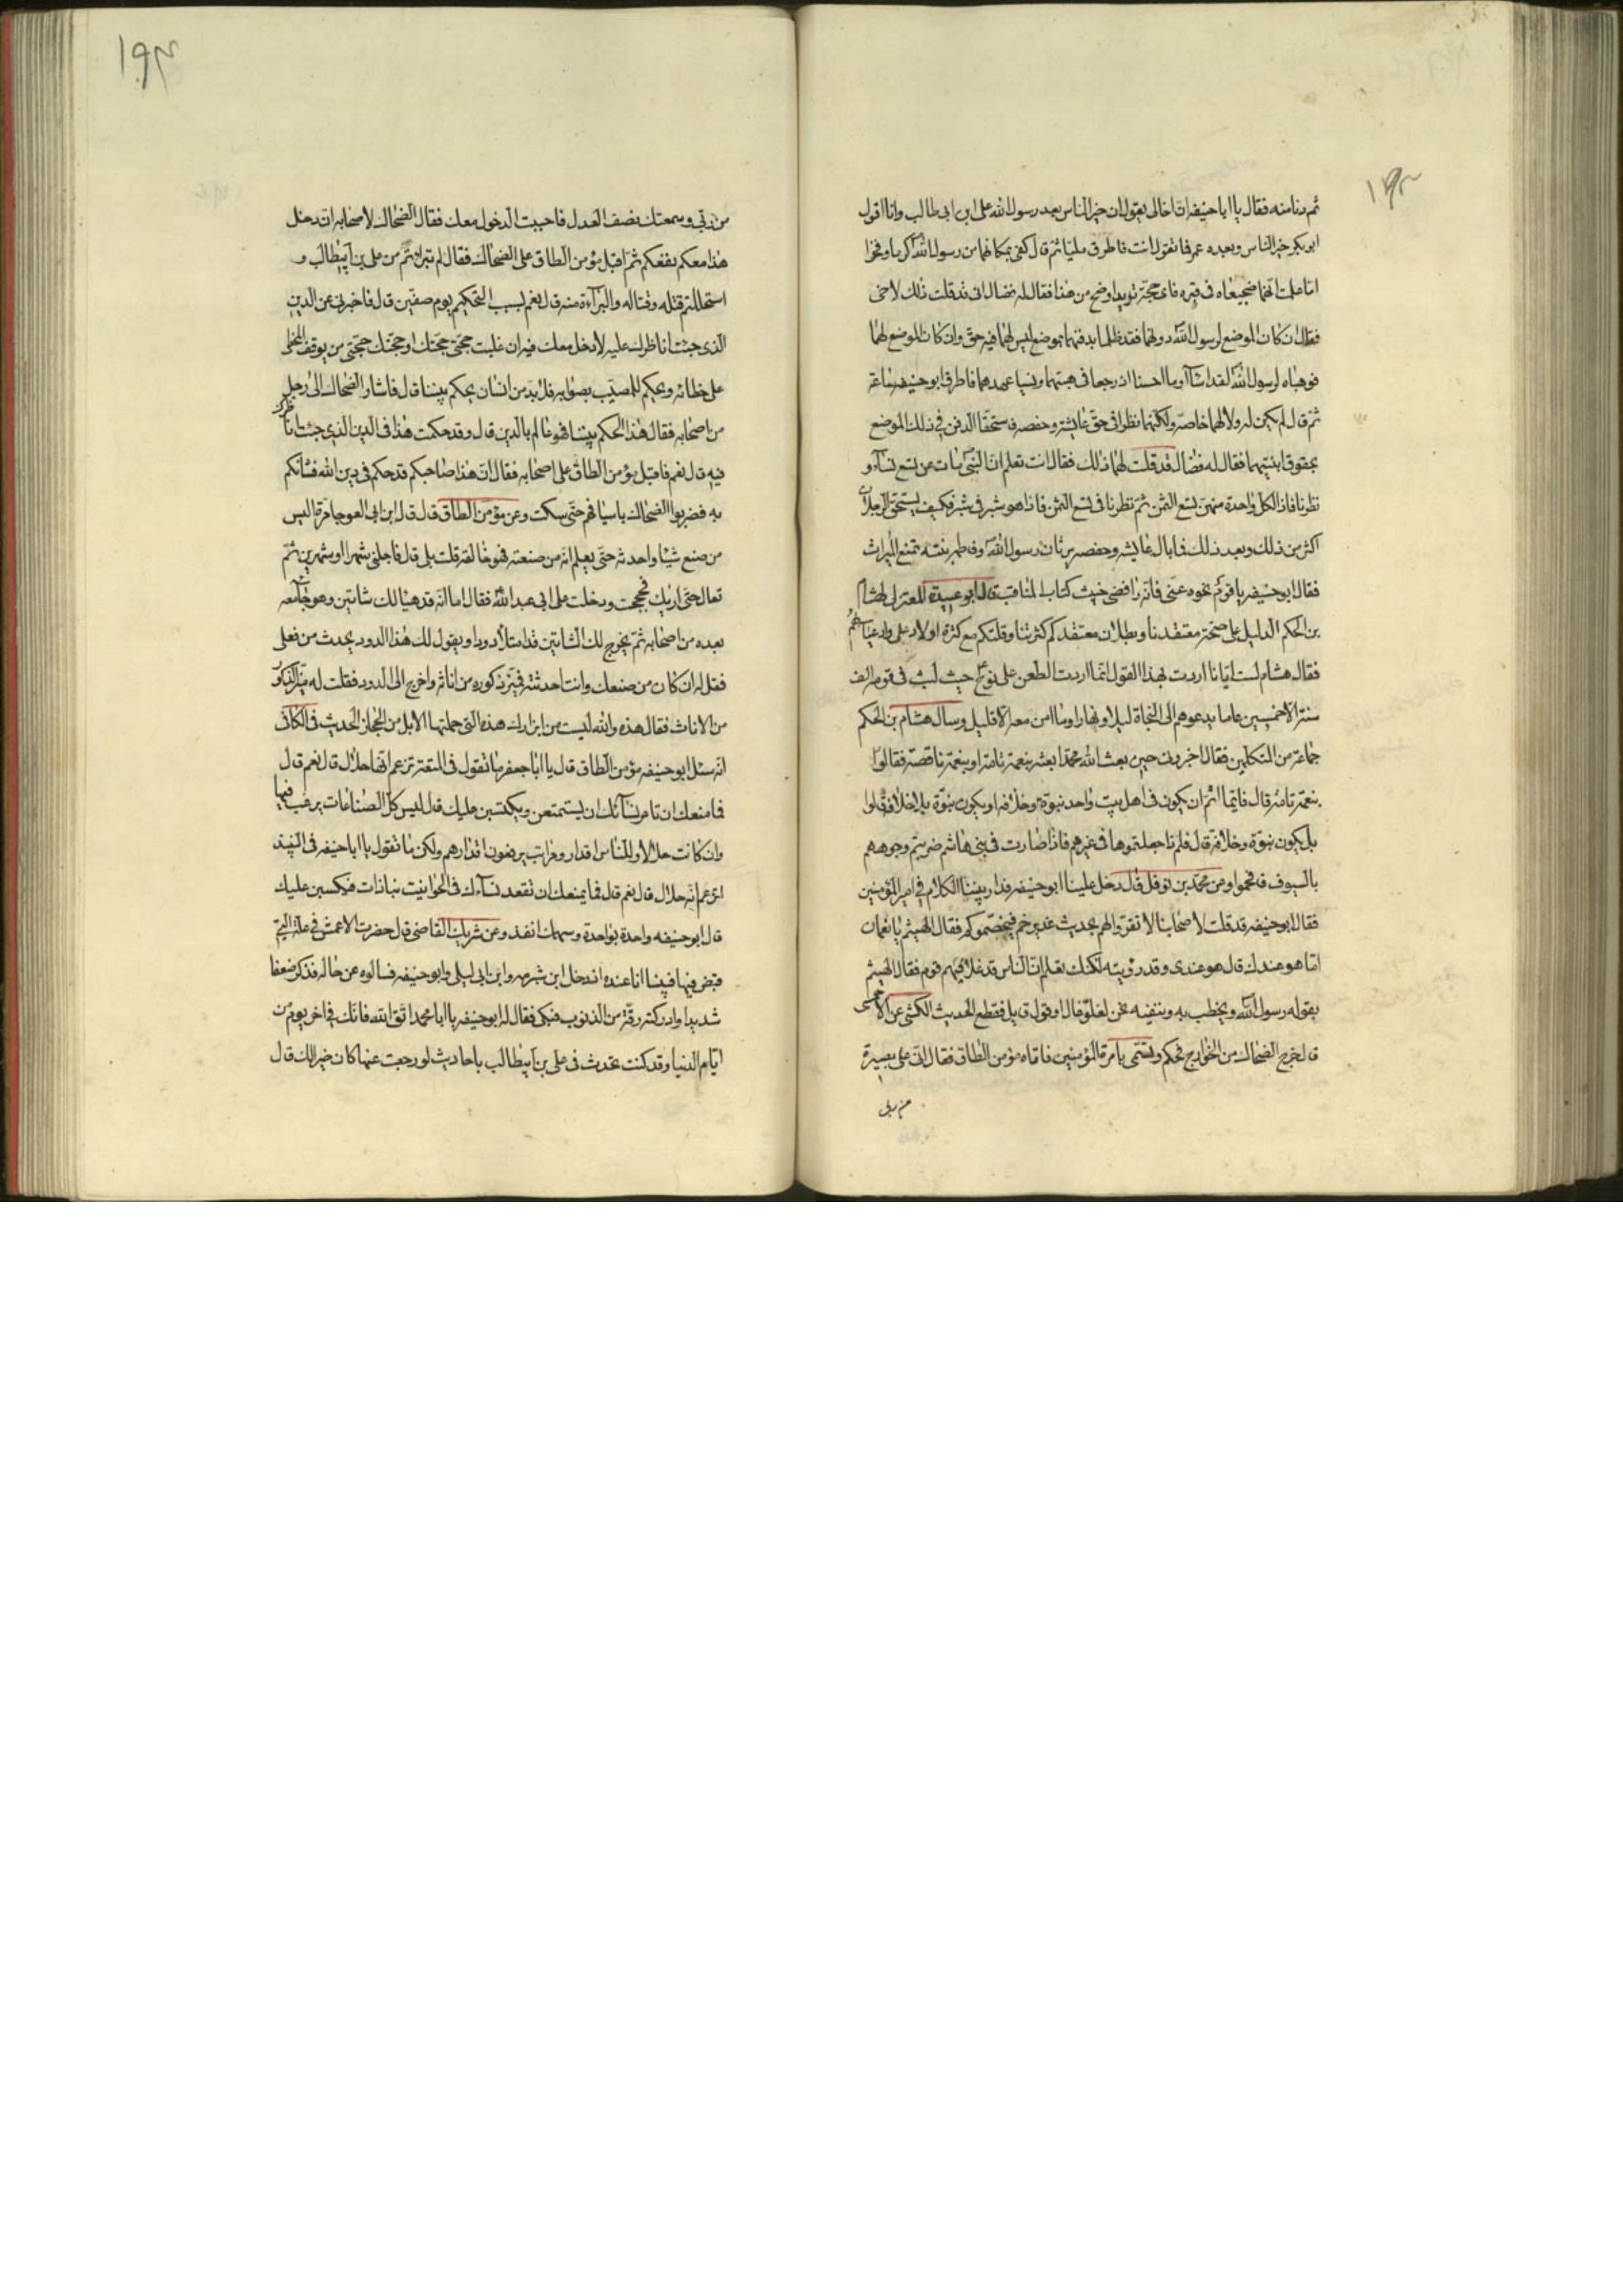 ١٩٣
ثم دنا منه فقال يا ابا حنيفه ان اخا لى يقول ان خير الناس بعد رسول الله على ابن ابى طالب وانا اقول
ابو بكر خير الناس وبعده عمر فما تقول انت فاطرق مليا ثم قال كفى بمكانهما من رسول الله كرما وفخرا
اما علمت انهما ضجيعاه فى قبره فاى حجة تريد اوضح من هذا فقال له فضال انى قد قلت ذلك لاخى
فقال ان كان الموضع لرسول الله دونهما فقد ظلما بدفنهما بموضع ليس لهما فيه حق وان كان الموضع لهما
فوهباه لرسول الله لقد اساآ وما احسنا اذ رجعا فى هبتهما ونسيا عهدهما فاطرق ابو حنيفه ساعة
ثم قال لم يكن له ولا لهما خاصة ولكنهما نظرا فى حق عايشه وحفصه فاستحقا الدفن فى ذلك الموضع
بحقوق ابنتيهما فقال له فضال قد قلت لهما ذلك فقال انت تعلم ان النبى مات عن تسع نساء و
نظرنا فاذا لكل واحدة منهن تسع الثمن ثم نظرنا فى تسع الثمن فاذا هو شبر فى شبر فكيف يستحق الرجلان
اكثر من ذلك وبعد ذلك فما بال عايشه وحفصه يرثان رسول الله وفاطمه بنته تمنع الميراث
فقال ابو حنيفه يا قوم نحوه عنى فانه رافضى خبيث كتاب المناقب قال ابو عبيدة المعتزلى لهشام
بن الحكم الدليل على صحة معتقدنا وبطلان معتقدكم كثرتنا وقلتكم مع كثرة اولاد على وادعيائهم
فقال هشام لست ايانا اردت بهذا القول انما اردت الطعن على نوح حيث لبث فى قومه الف
سنة الا خمسين عاما يدعوهم الى النجاة ليلا ونهارا وما امن معه الا قليل وسال هشام بن الحكم
جماعة من المتكلمين فقال اخبرونى حين بعث الله محمدا بعثه بنعمة تامة او بنعمة ناقصة فقالوا
بنعمة تامة قال فايما اتم ان يكون فى اهل بيت واحد نبوة وخلافة او يكون نبوة بلا خلافة قالوا
بل يكون نبوة وخلافة قال فلم ذا جعلتموها فى غيرهم فاذا صارت فى بنى هاشم ضربتم وجوههم
بالسيوف فافحموا ومن محمد بن نوفل قال دخل علينا ابو حنيفه فدار بيننا الكلام فى امير المؤمنين
فقال ابو حنيفه قد قلت لاصحابنا لا تقروا لهم بحديث غدير خم فيخصموكم فقال الهيثم يا نعمان
اما هو عندك قال هو عندى وقد رويته لكنك تعلم ان الناس قد غلا فيهم قوم فقال الهيثم
يقوله رسول الله ويخطب به وننفيه نحن لغلو غال او قول قايل فقطع الحديث الكشى عن الاحمسى
قال خرج الضحاك من الخوارج فحكم وتسمى بامرة المؤمنين فاتاه مؤمن الطاق فقال انى على بصيرة
من دينى
١٩٣
من دينى وسمعتك تصف العدل فاحببت الدخول معك فقال الضحاك لاصحابه ان دخل
هذا معكم نفعكم ثم اقبل مؤمن الطاق على الضحاك فقال لم تبراتم من على بن ابيطالب و
استحللتم قتله وقتاله والبرآءة منه قال نعم لسبب التحكيم يوم صفين قال فاخبرنى عن الدين
الذى جئت اناظرك عليه لادخل معك فيه ان غلبت حجتى حجتك او حجتك حجتى من يوقف المخطى
على خطائه ويحكم للمصيب بصوابه فلا بد من انسان يحكم بيننا قال فاشار الضحاك الى رجل
من اصحابه فقال هذا الحكم بيننا فهو عالم بالدين قال وقد حكمت هذا فى الدين الذى جئت اناظرك
فيه قال نعم فاقبل مؤمن الطاق على اصحابه فقال ان هذا صاحبكم قد حكم فى دين الله فشانكم
به فضربوا الضحاك باسيافهم حتى سكت وعن مؤمن الطاق قال قال ابن ابى العوجا مرة اليس
من صنع شيئا واحدثه حتى يعلم انه من صنعته فهو خالقه قلت بلى قال فاجلنى شهرا او شهرين ثم
تعال حتى اريك فحججت ودخلت على ابى عبد الله فقال اما انه قد هيا لك شاتين وهو جاء معه
بعده من اصحابه ثم يخرج لك الشاتين قد امتلأ دودا ويقول لك هذا الدود يحدث من فعلى
فقل له ان كان من صنعك وانت احدثته فميز ذكوره من اناثه واخرج الى الدود فقلت له ميز الذكور
من الاناث فقال هذه والله ليست من ابزارك هذه التى حملتها الابل من الحجاز الحديث فى الكافى
انه سئل ابو حنيفه مؤمن الطاق قال يا ابا جعفر ما تقول فى المتعة تزعم انها حلال قال نعم قال
فما منعك ان تامر نسآئك ان يستمتعن ويكتسبن عليك قال ليس كل الصناعات يرغب فيها
وان كانت حلالا وللناس اقدار ومراتب يرفعون اقدارهم ولكن ما تقول يا ابا حنيفه فى النبيذ
اتزعم انه حلال قال نعم قال فما يمنعك ان تقعد نسآءك فى الحوانيت نباذات فيكسبن عليك
قال ابو حنيفه واحدة بواحدة وسهمك انفذ وعن شريك القاضى قال حضرت الاعمش فى علته التى
قبض فيها فبينا انا عنده اذ دخل ابن شبرمه وابن ابى ليلى وابو حنيفه فسالوه عن حاله فذكر ضعفا
شديدا وادركته رقة من الذنوب فبكى فقال له ابو حنيفه يا ابا محمد اتق الله فانك فى اخر يوم من
ايام الدنيا وقد كنت تحدث فى على بن ابيطالب باحاديث لو رجعت عنها كان خيرا لك قال